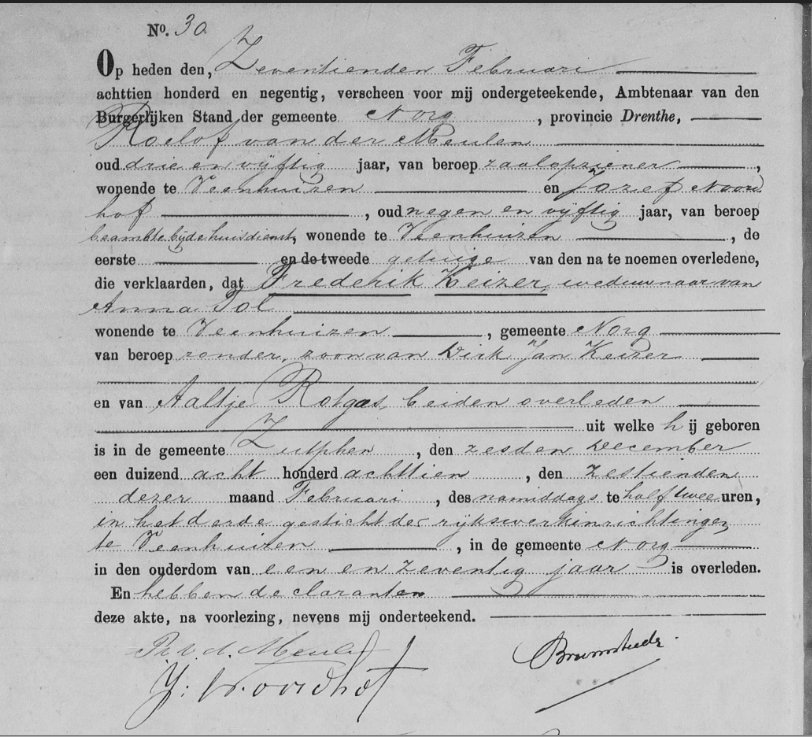 No. 30
Op heden den, Zeventienden Februari
achttien honderd en negentig, verscheen voor mij ondergeteekende, Ambtenaar van den
Burgerlijken Stand der gemeente Norg, provincie Drenthe,
Roelof van der Meulen
oud drie en vijftig jaar, van beroep zaalopziener,
wonende te Veenhuizen en Jozef Noord
hof, oud negen en vijftig jaar, van beroep
beambte bij de huisdienst, wonende te Veenhuizen, de
eerste en de tweede getuige van den na te noemen overledene,
die verklaarden, dat Frederik Keizer, weduwnaar van
Anna Tol
wonende te Veenhuizen, gemeente Norg
van beroep zonder, zoon van Dirk Jan Keizer
en van Aaltje Rotgas, beiden overleden
uit welke hij geboren
is in de gemeente Zutphen, den zesden December
een duizend acht honderd achttien, den zestienden
dezer maand Februari, des namiddags te half twee uren,
in het derde gesticht der rijkswerkinrichtingen
te Veenhuizen, in de gemeente Norg
in den ouderdom van een en zeventig jaar is overleden.
En hebben de claranten
deze akte, na voorlezing, nevens mij onderteekend.
R. v. d. Meulen
J: Noordhof